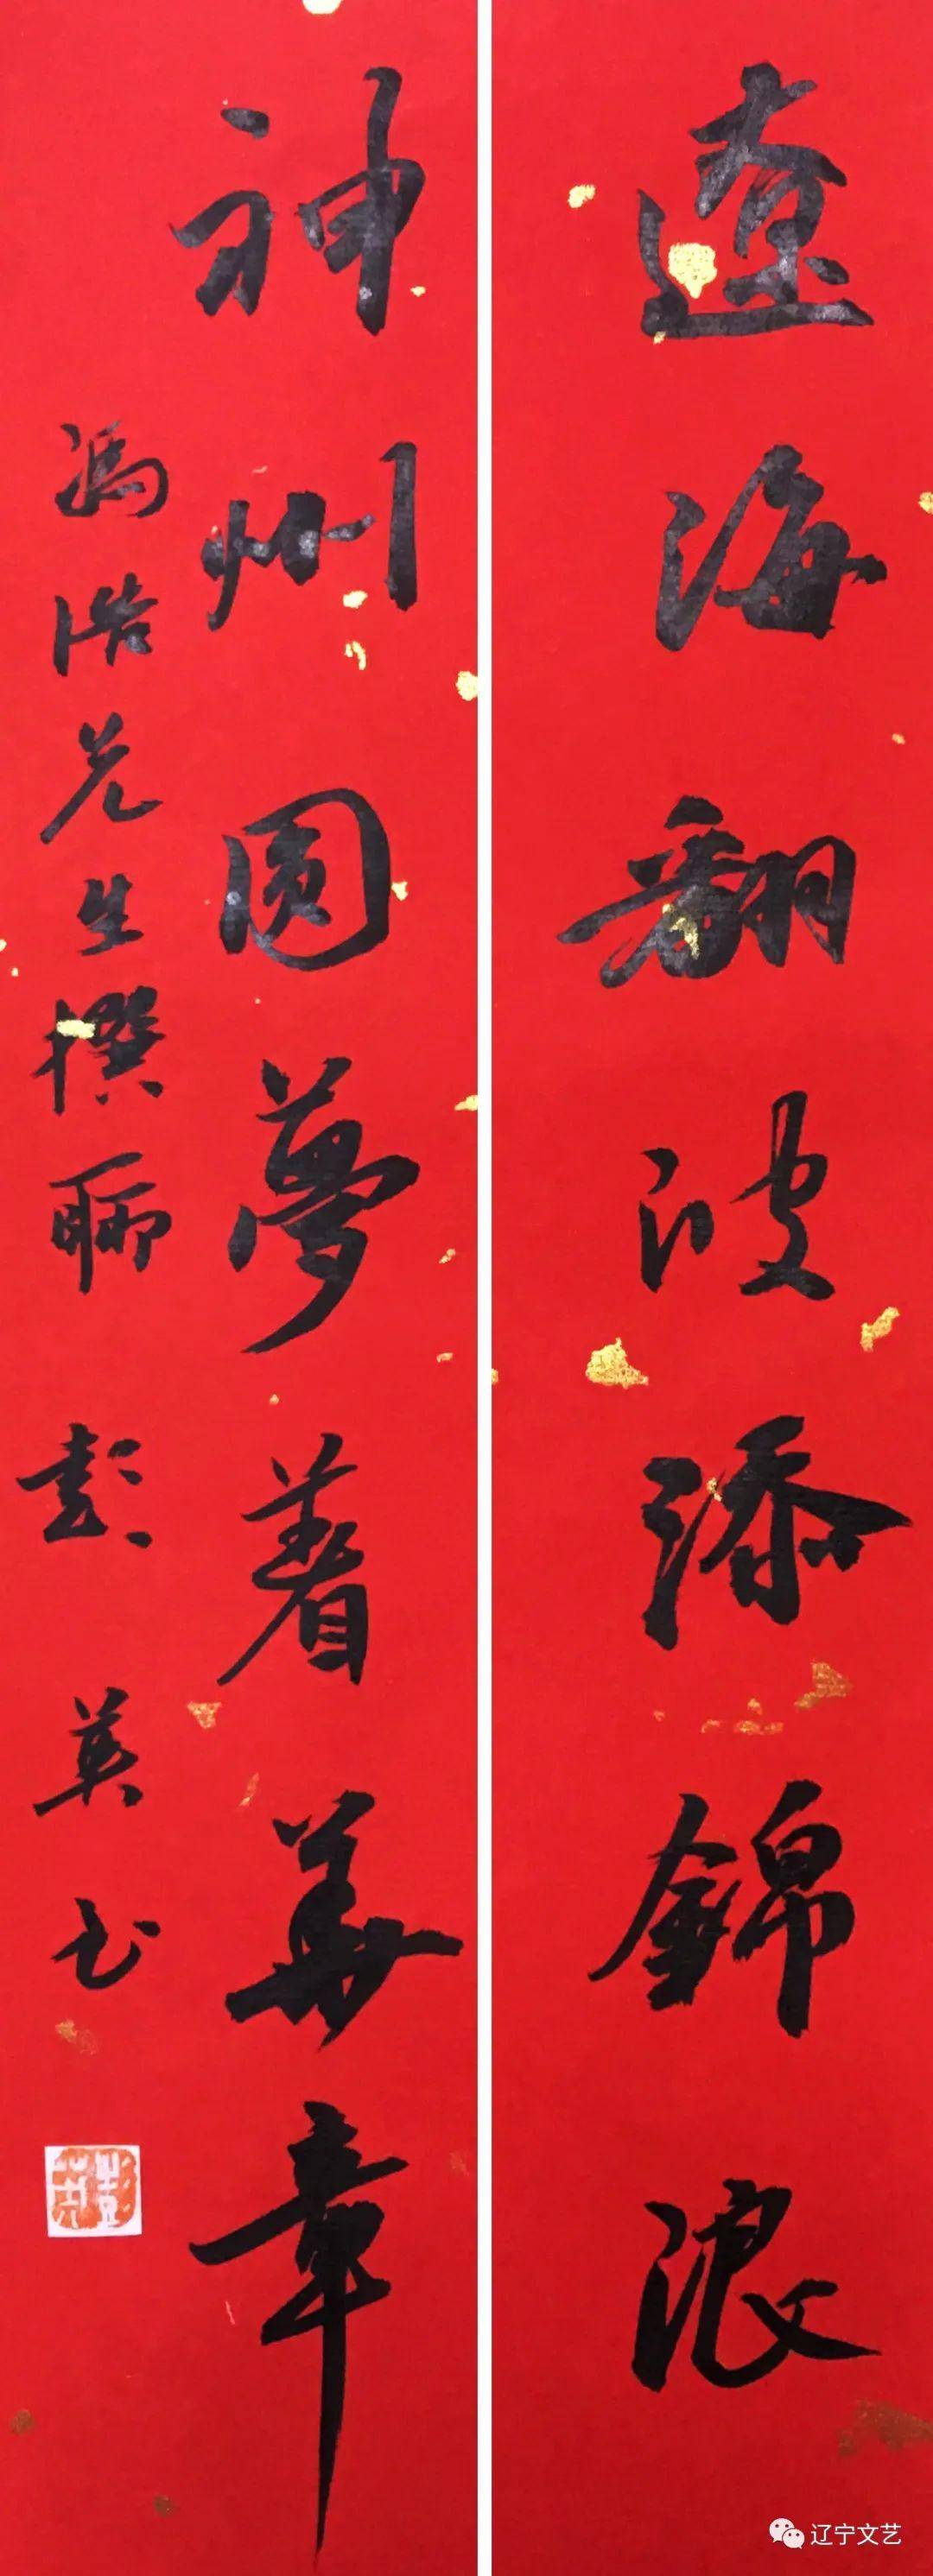 遼海翻波添錦浪
神州圓夢著華章
馮浩先生撰聯 彭英书
辽宁文艺